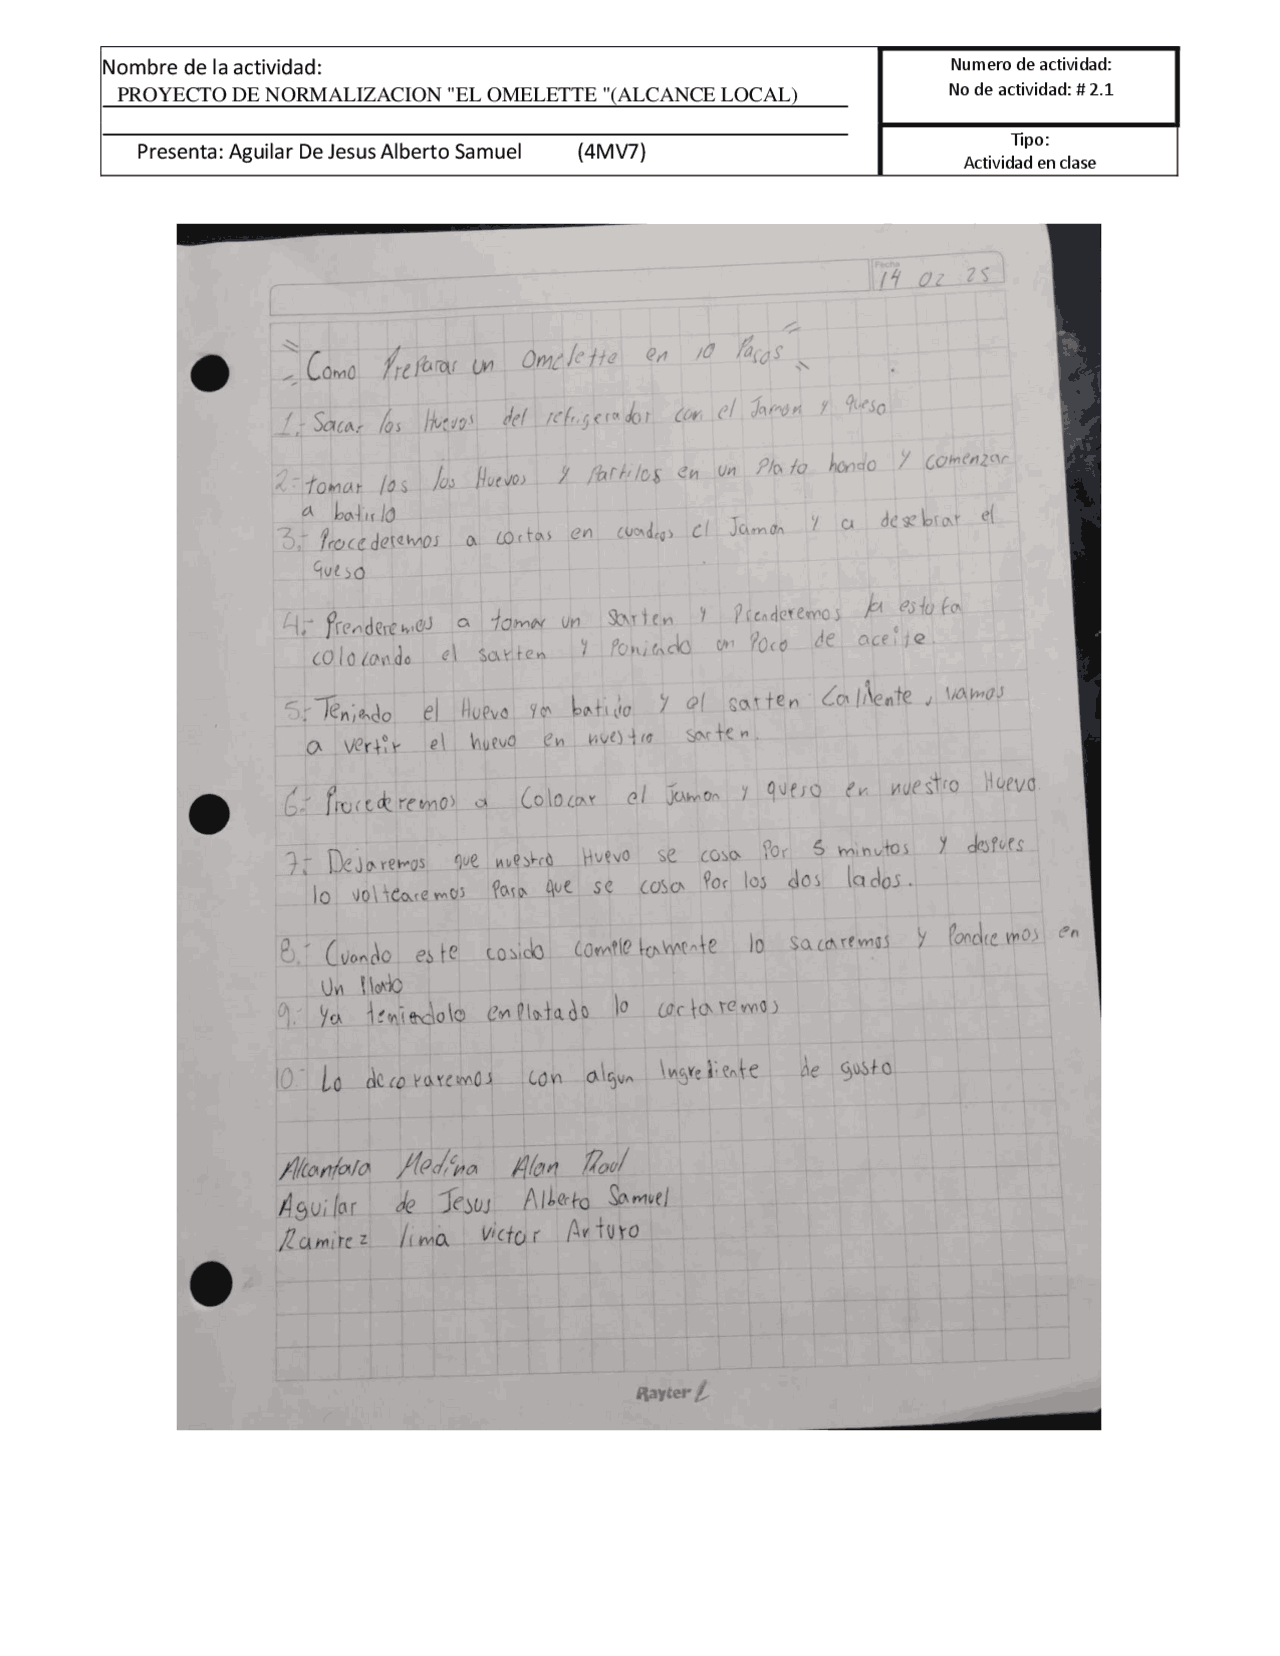 Nombre de la actividad:
PROYECTO DE NORMALIZACION "EL OMELETTE "(ALCANCE LOCAL)
Presenta: Aguilar De Jesus Alberto Samuel (4MV7)
Numero de actividad:
No de actividad: # 2.1
Tipo:
Actividad en clase
Fecha
14 02 25
Como Preparar un Omelette en 10 Pasos
1.- Sacar los Huevos del refrigerador con el Jamon y queso
2.- tomar los los Huevos y Partilos en un Plato hondo y comenzar
a batirlo
3.- Procederemos a cortas en cuadros el Jamon y a desebrar el
queso
4.- Prenderemos a tomar un sarten y Prenderemos la estufa
colocando el sarten y Poniendo un Poco de aceite
5.- Teniendo el Huevo ya batido y el sarten Caliente, vamos
a vertir el huevo en nuestro sarten.
6.- Procederemos a Colocar el Jamon y queso en nuestro Huevo
7.- Dejaremos que nuestro Huevo se cosa Por 5 minutos y despues
lo voltearemos Para que se cosa Por los dos lados.
8.- Cuando este cosido completamente lo sacaremos y Pondremos en
Un Plato
9.- Ya teniendolo enPlatado lo cortaremos
10.- Lo decoraremos con algun Ingrediente de gusto
Alcantara Medina Alan Raul
Aguilar de Jesus Alberto Samuel
Ramirez lima Victor Arturo
Rayter